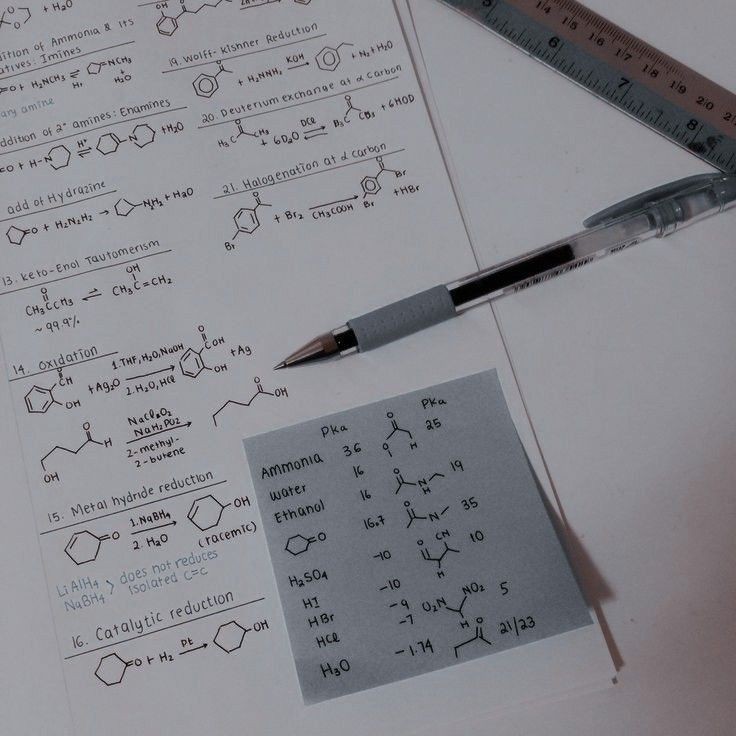 + H2O
OH
dition of Ammonia & its
atives: Imines
O + H2NCH3 ⇌ =NCH3
H+
+
H2O
any amine
ddition of 2° amines: Enamines
=O + H-N H+ ⇌ N +H2O
add of Hydrazine
=O + H2N2H2 → NH2 + H2O
13. Keto-Enol Tautomerism
O OH
CH3CCH3 ⇌ CH3C=CH2
~ 99.9%
14. Oxidation
O
CH
OH
+ Ag2O
1. THF, H2O, NaOH
2. H2O, HCl
O
COH
OH
+ Ag
O
H
OH
NaCl2O2
NaH2PO2
2-methyl-
2-butene
O
OH
15. Metal hydride reduction
O
1. NaBH4
2. H2O
OH
(racemic)
LiAlH4
NaBH4 > does not reduces
isolated C=C
16. Catalytic reduction
=O + H2 Pt → OH
19. Wolff-Kishner Reduction
O
+ H2NNH2 KOH → + N2 + H2O
20. Deuterium exchange at α carbon
O
H3C CH3 + 6D2O DCl ⇌ O
D3C CD3 + 6HOD
21. Halogenation at α carbon
O
Br
+ Br2
CH3COOH
O
Br
Br
+ HBr
Pka
Pka
Ammonia 36
O H 25
Water 16
O N H 19
Ethanol 16
O N 35
O 16.7
O CN H 10
H2SO4 -10
O2N NO2 H 5
HI -10
HBr -9
HCl -7
O 21/23
H3O -1.74
5 6 7 8
14 15 16 17 18 19 20 21